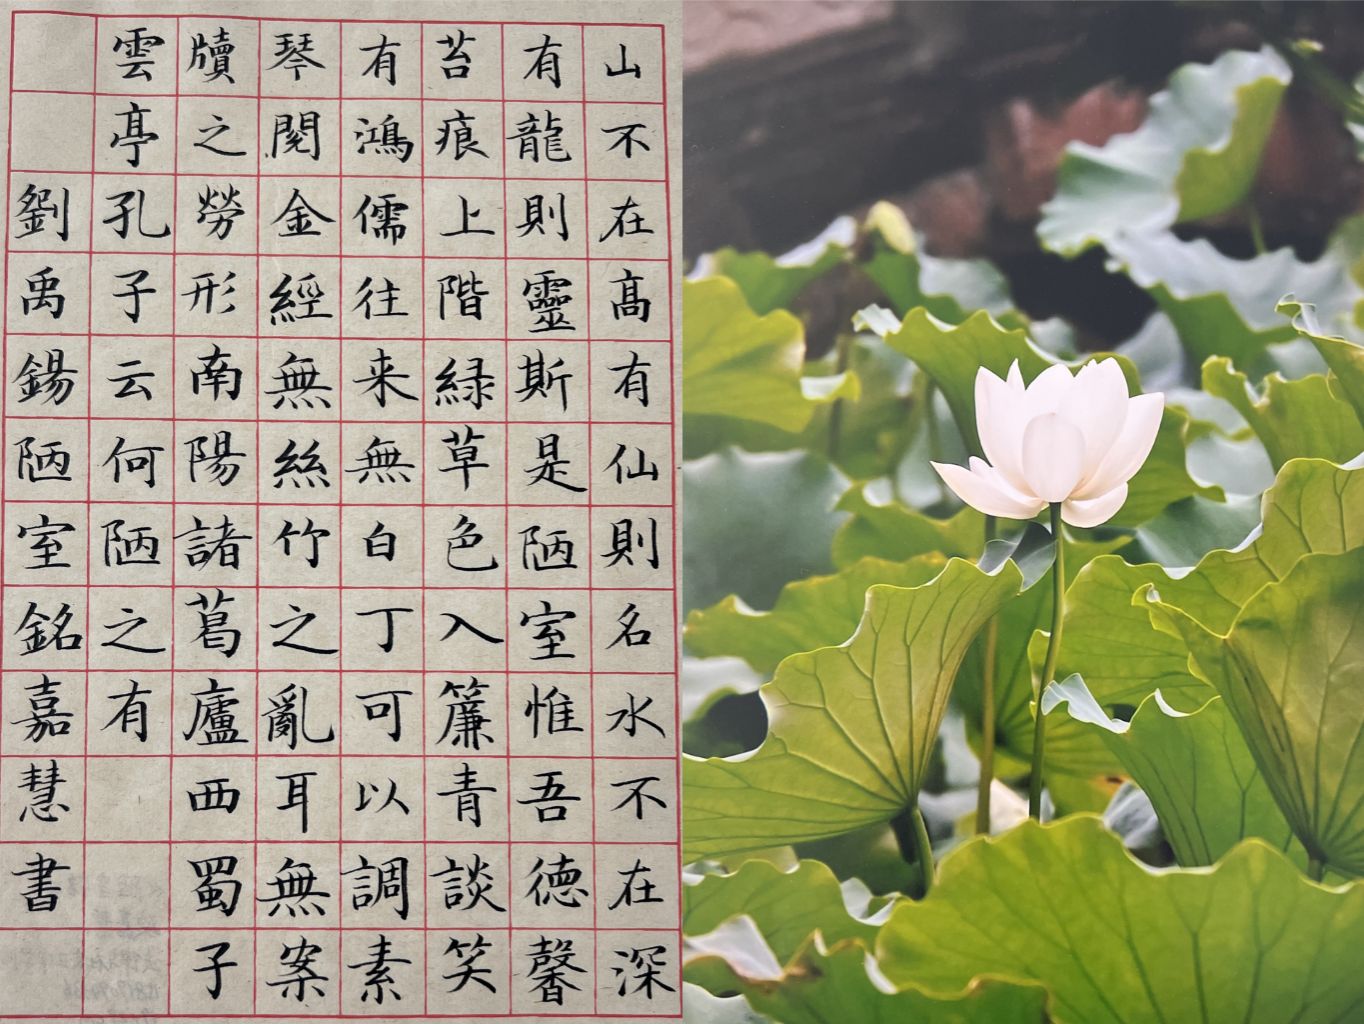 山不在高有仙則名水不在深
有龍則靈斯是陋室惟吾德馨
苔痕上階緑草色入簾青談笑
有鴻儒往来無白丁可以調素
琴閱金經無絲竹之亂耳無案
牘之勞形南陽諸葛廬西蜀子
雲亭孔子云何陋之有
劉禹錫陋室銘嘉慧書